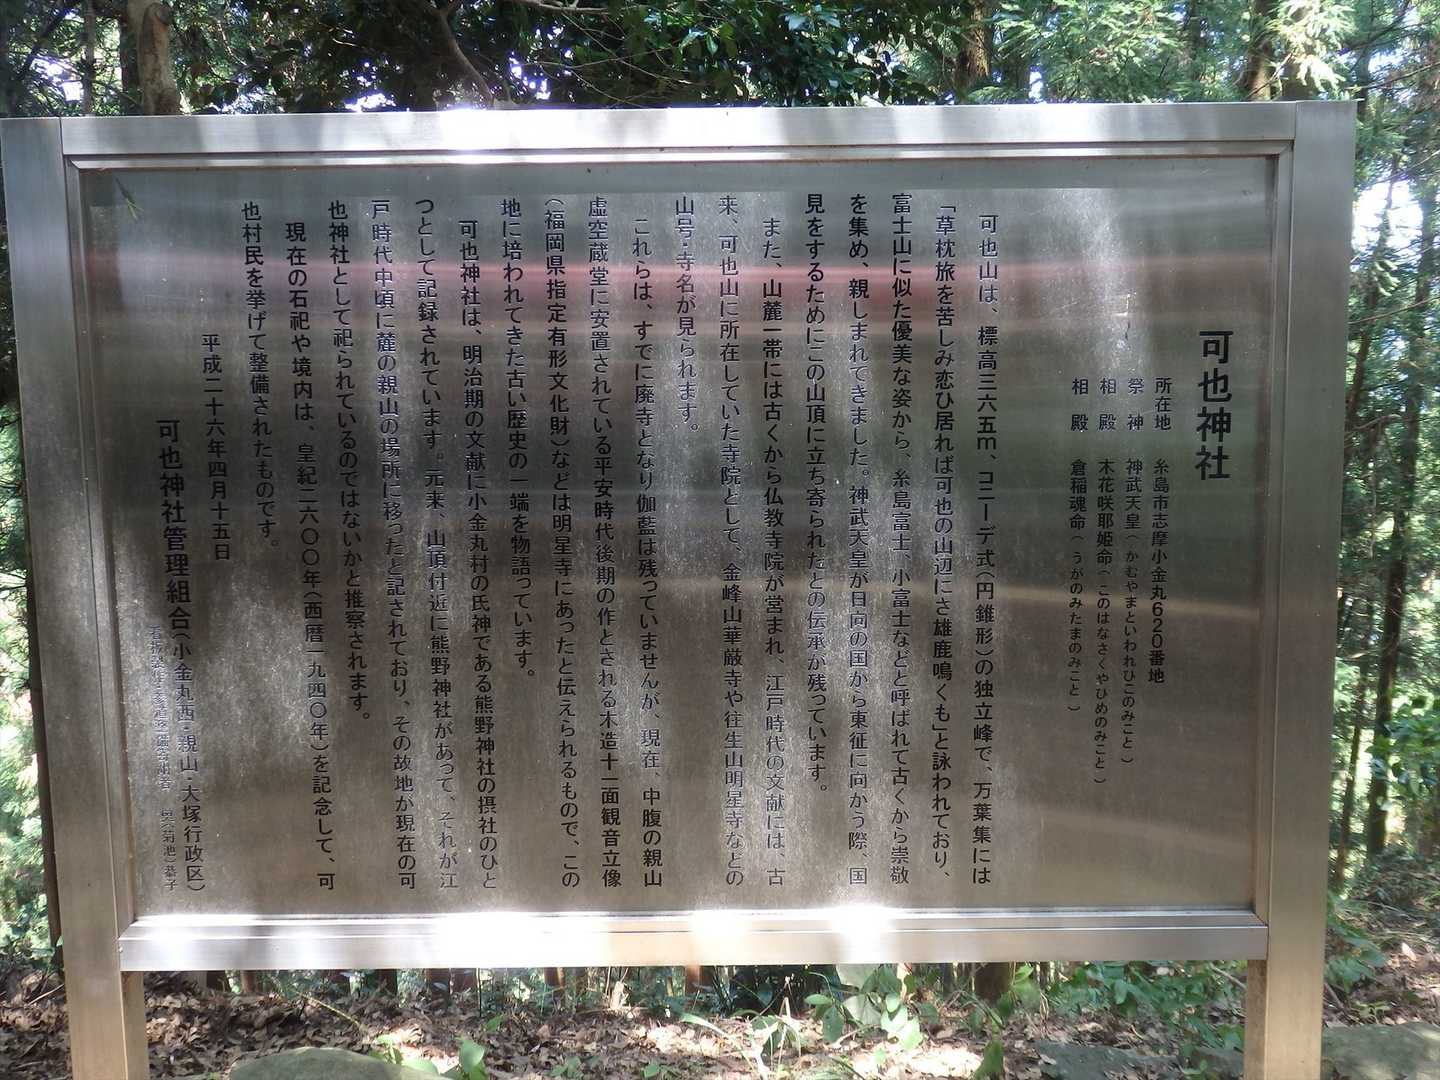 可也神社
所在地　糸島市志摩小金丸620番地
祭　神　神武天皇（かむやまといわれひこのみこと）
相　殿　木花咲耶姫命（このはなさくやひめのみこと）
相　殿　倉稲魂命（うがのみたまのみこと）
可也山は、標高三六五m、コニーデ式（円錐形）の独立峰で、万葉集には
「草枕旅を苦しみ恋ひ居れば可也の山辺にさ雄鹿鳴くも」と詠われており、
富士山に似た優美な姿から、糸島富士、小富士などと呼ばれて古くから崇敬
を集め、親しまれてきました。神武天皇が日向の国から東征に向かう際、国
見をするためにこの山頂に立ち寄られたとの伝承が残っています。
また、山麓一帯には古くから仏教寺院が営まれ、江戸時代の文献には、古
来、可也山に所在していた寺院として、金峰山華厳寺や往生山明星寺などの
山号・寺名が見られます。
これらは、すでに廃寺となり伽藍は残っていませんが、現在、中腹の親山
虚空蔵堂に安置されている平安時代後期の作とされる木造十一面観音立像
（福岡県指定有形文化財）などは明星寺にあったと伝えられるもので、この
地に培われてきた古い歴史の一端を物語っています。
可也神社は、明治期の文献に小金丸村の氏神である熊野神社の摂社のひと
つとして記録されています。元来、山頂付近に熊野神社があって、それが江
戸時代中頃に麓の親山の場所に移ったと記されており、その故地が現在の可
也神社として祀られているのではないかと推察されます。
現在の石祀や境内は、皇紀二六〇〇年（西暦一九四〇年）を記念して、可
也村民を挙げて整備されたものです。
平成二十六年四月十五日
可也神社管理組合（小金丸西・親山・大塚行政区）